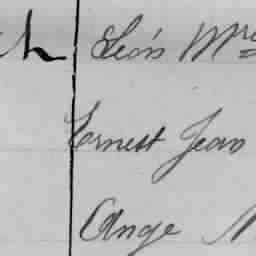 Léon Mre
Ernest Jean
Ange